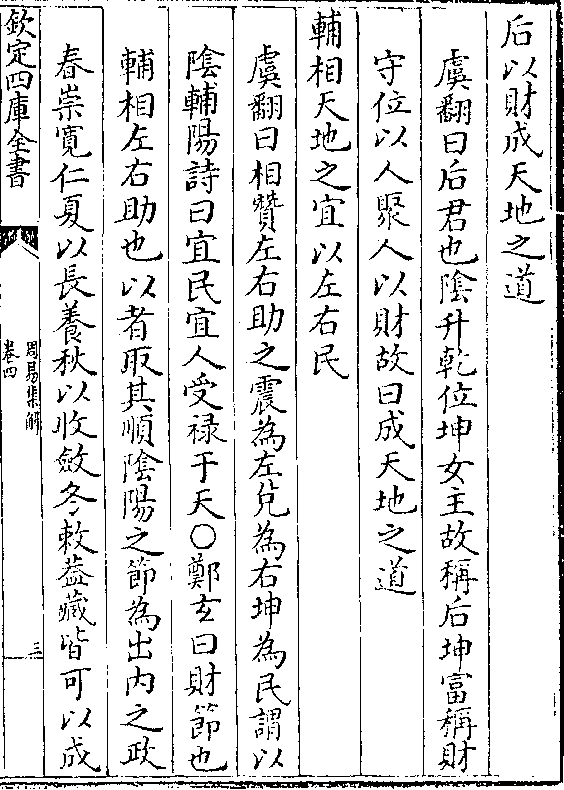 后以財成天地之道
虞翻曰后君也陰升乾位坤女主故稱后坤富稱財
守位以人聚人以財故曰成天地之道
輔相天地之宜以左右民
虞翻曰相贊左右助之震為左兌為右坤為民謂以
陰輔陽詩曰宜民宜人受禄于天○鄭玄曰財節也
輔相左右助也以者取其順陰陽之節為出内之政
春崇寛仁夏以長養秋以收斂冬敕葢藏皆可以成
欽定四庫全書
周易集解
卷四
三